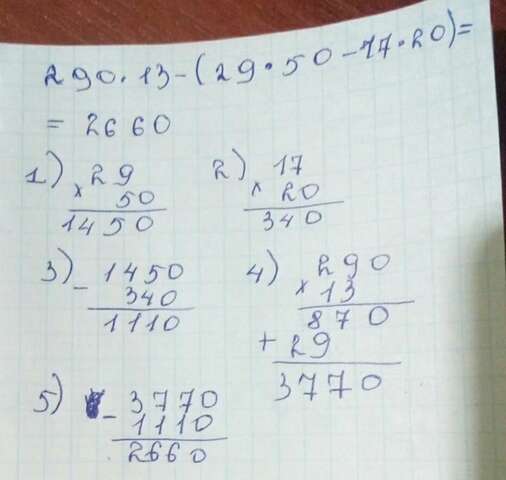 290·13-(29·50-17·20)=
= 2660
1) × 29
50
1450
2) × 17
20
340
3) - 1450
340
1110
4) × 290
13
870
+ 29
3770
5) - 3770
1110
2660